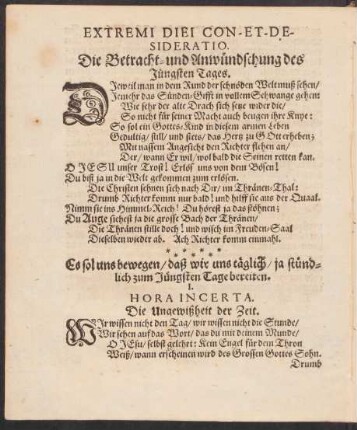 EXTREMI DIEI CON-ET-DE-
SIDERATIO.
Die Betracht- und Anwündschung des
Jüngsten Tages.
DJeweil man in dem Rund der schnöden Welt muß sehen/
Jemehr das Sünden-Gifft in vollem Schwange gehen:
Wie sehr der alte Drach sich setze wider die/
So nicht für seiner Macht auch beugen ihre Knye:
So sol ein Gottes-Kind in diesem armen Leben
Gedultig/ still/ und stets/ das Hertz zu GOtt erheben;
Mit nassem Angesicht den Richter flehen an/
Der/ wann Er wil/ wol bald die Seinen retten kan.
O JESU unser Trost! Erlös' uns von dem Bösen!
Du bist ja in die Welt gekommen zum erlösen.
Die Christen sehnen sich nach Dir/ im Thränen-Thal:
Drumb Richter komm nur bald! und hilff sie aus der Quaal.
Nimm sie ins Himmel-Reich! Du hörest ja das stöhnen;
Du Auge siehest ja die grosse Bach der Thränen/
Die Thränen stille doch! und wisch im Freuden-Saal
Dieselben wieder ab. Ach Richter komm einmahl.
* * * * * * *
Es sol uns bewegen/ daß wir uns täglich/ ja stünd-
lich zum Jüngsten Tage bereiten.
I.
HORA INCERTA.
Die Ungewißheit der Zeit.
WJr wissen nicht den Tag/ wir wissen nicht die Stunde/
Wir sehen auf das Wort/ das du mit deinem Munde/
O JEsu/ selbst gelehrt: Kein Engel für dem Thron
Weiß/ wann erscheinen wird des Grossen Gottes Sohn.
Drumb